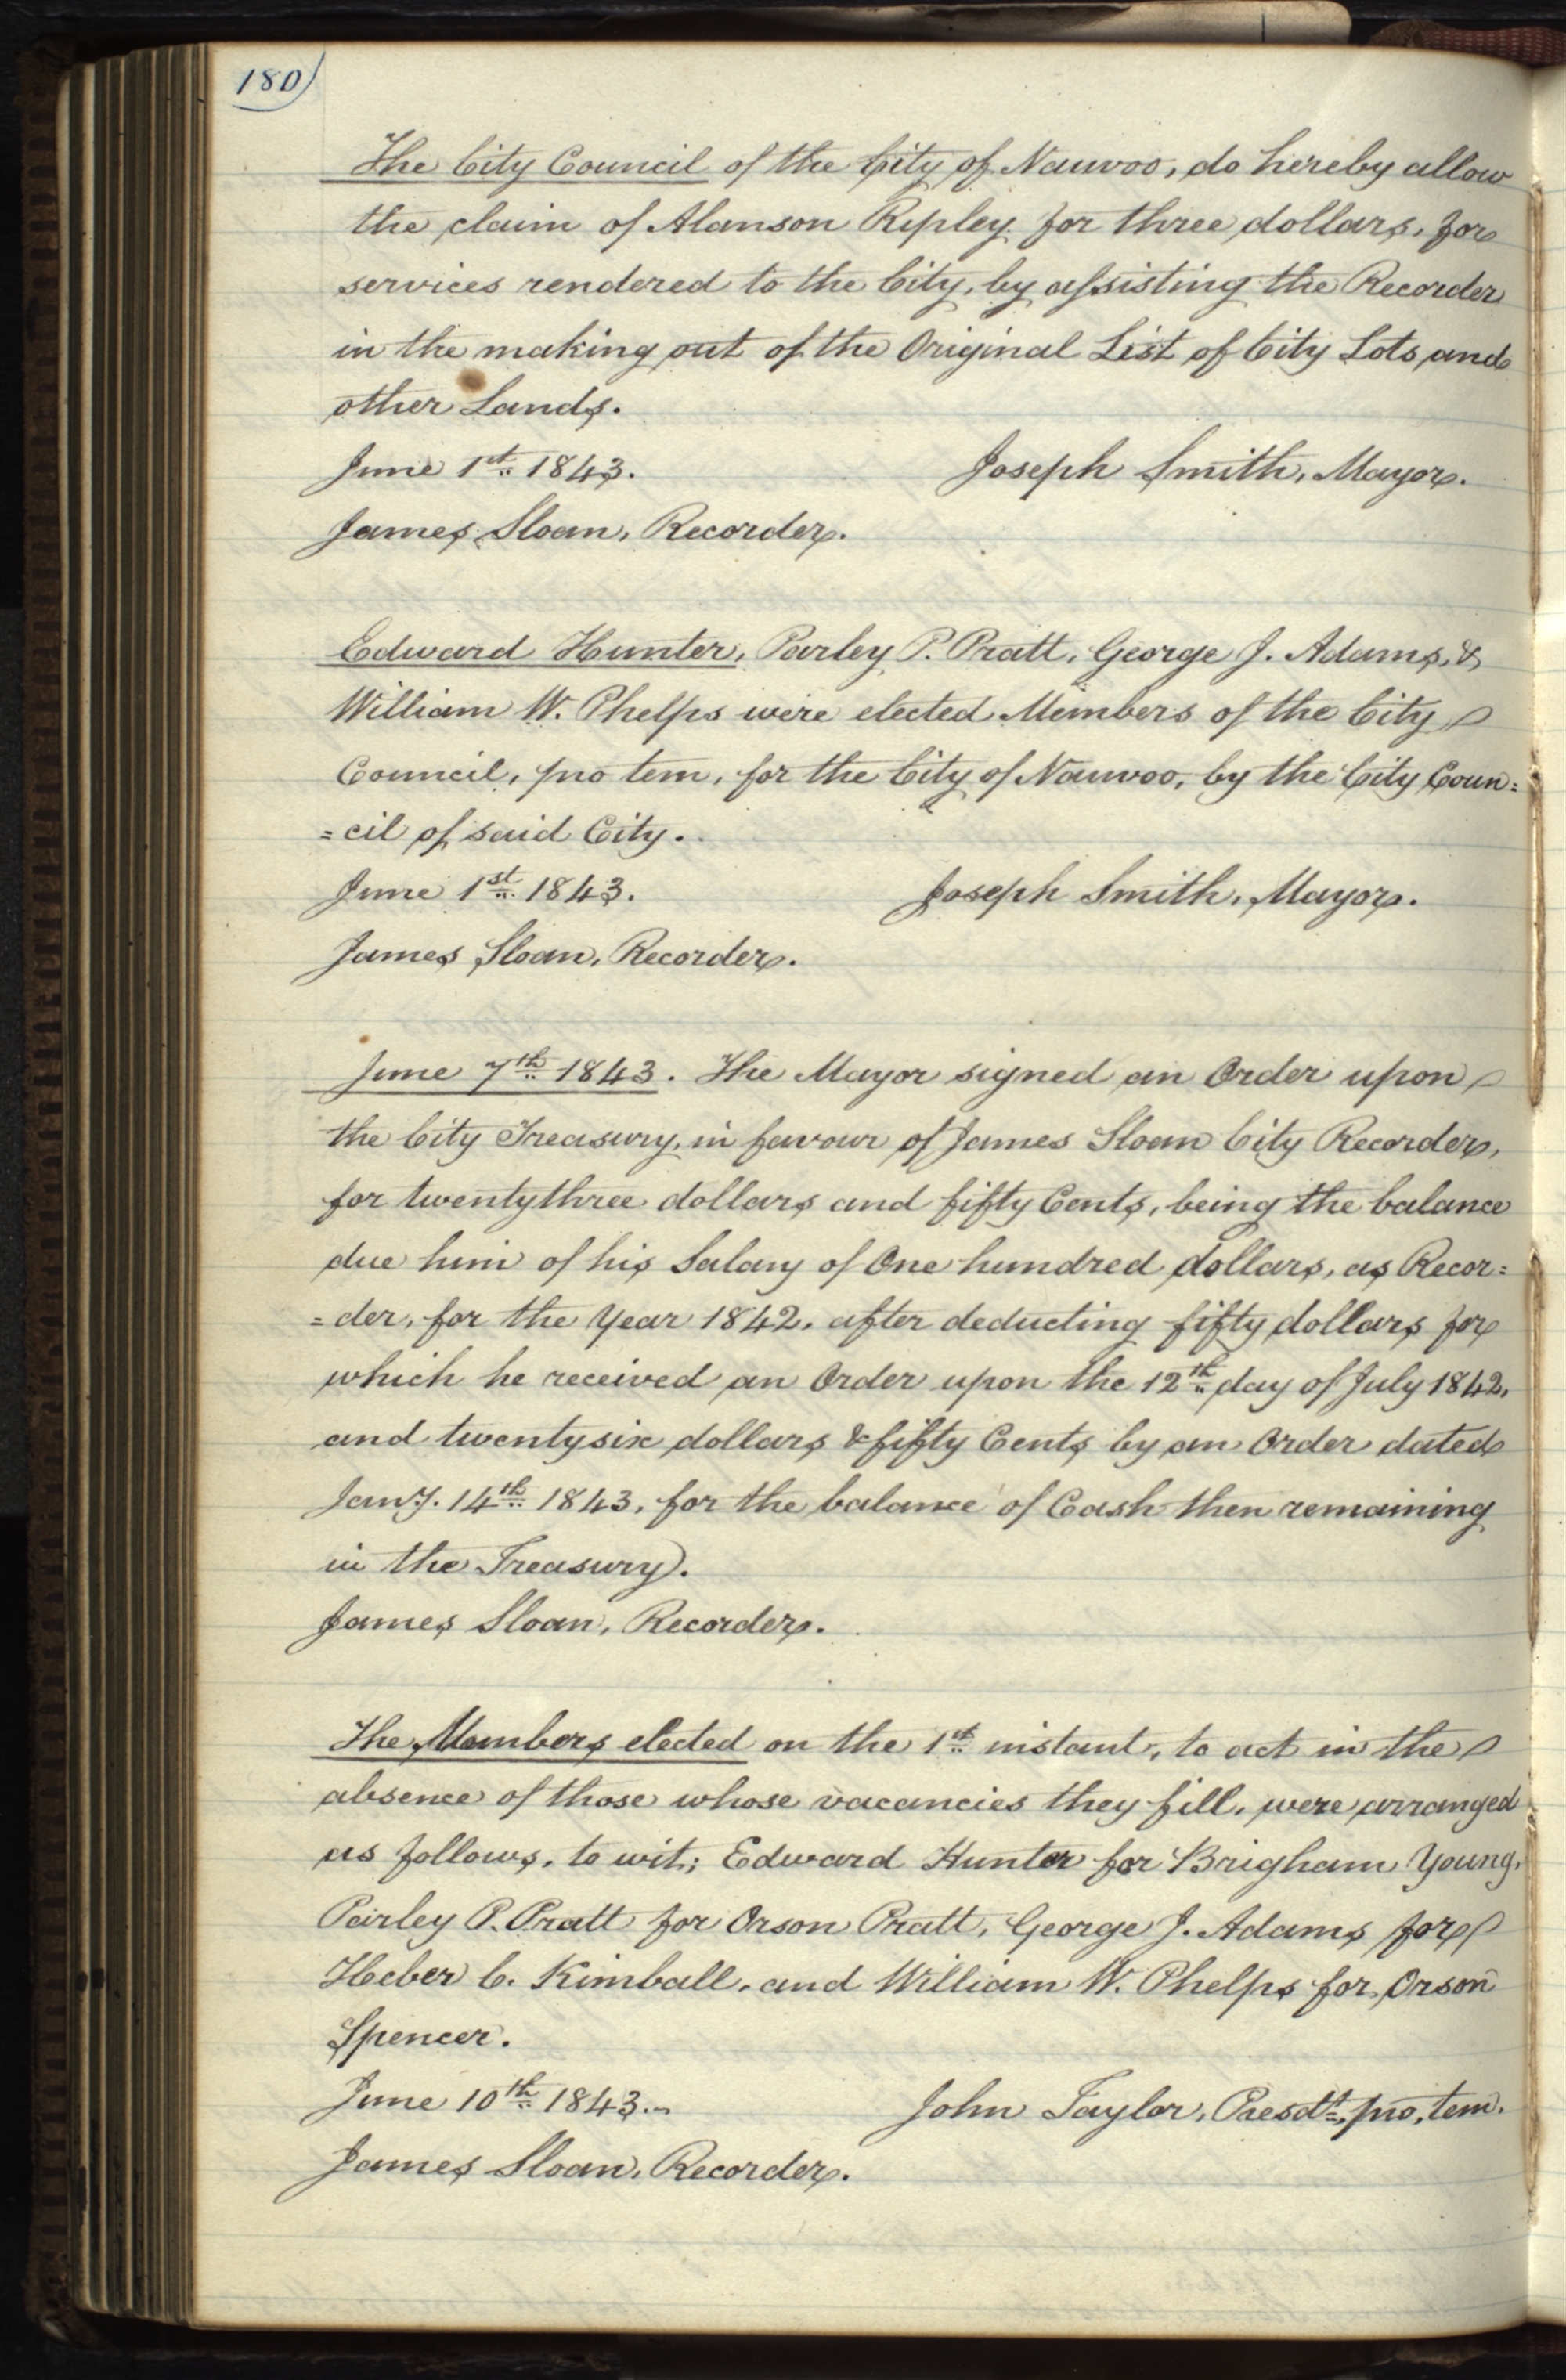 180
The City Council of the City of Nauvoo, do hereby allow
the claim of Alanson Ripley for three dollars, for
services rendered to the City, by assisting the Recorder
in the making out of the Original List of City Lots and
other Lands.
June 1st 1843. Joseph Smith, Mayor.
James Sloan, Recorder.
Edward Hunter, Parley P. Pratt, George J. Adams, &
William W. Phelps were elected Members of the City
Council, pro tem, for the City of Nauvoo, by the City Coun=
=cil of said City.
June 1st 1843. Joseph Smith, Mayor.
James Sloan, Recorder.
June 7th 1843. The Mayor signed an Order upon
the City Treasury, in favour of James Sloan City Recorder,
for twentythree dollars and fifty Cents, being the balance
due him of his Salary of One hundred dollars, as Recor=
=der, for the Year 1842, after deducting fifty dollars for
which he received an Order upon the 12th day of July 1842,
and twentysix dollars & fifty Cents by an Order dated
Jany. 14th 1843, for the balance of Cash then remaining
in the Treasury).
James Sloan, Recorder.
The Members elected on the 1st instant, to act in the
absence of those whose vacancies they fill, were arranged
as follows, to wit; Edward Hunter for Brigham Young,
Parley P. Pratt for Orson Pratt, George J. Adams for
Heber C. Kimball, and William W. Phelps for Orson
Spencer.
June 10th 1843. John Taylor, Presdt. pro, tem.
James Sloan, Recorder.